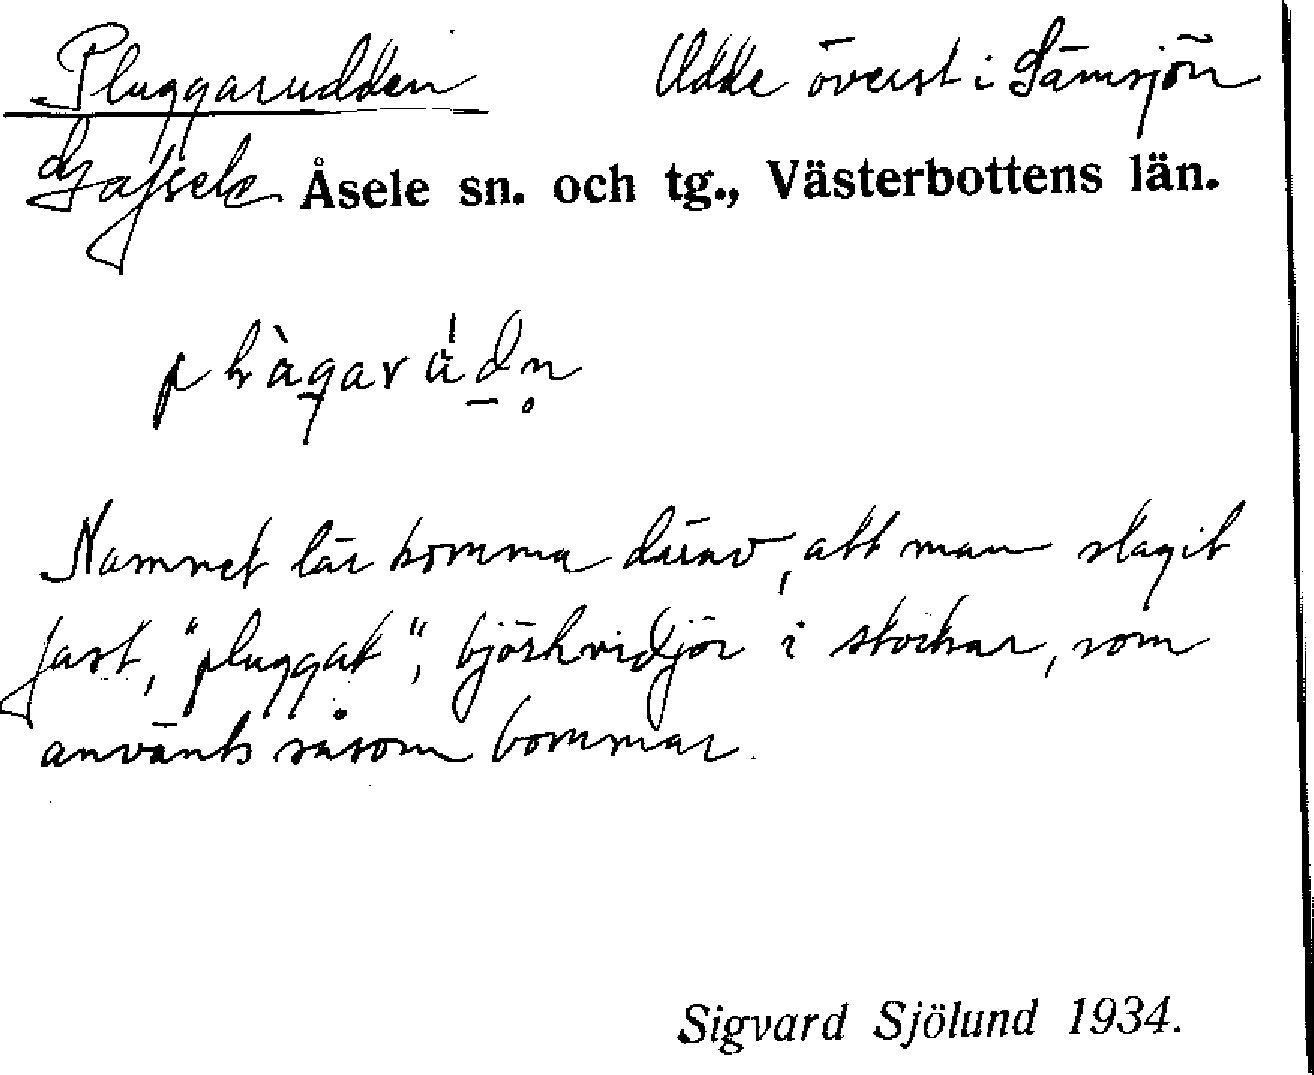 Pluggarudden Udde överst i Sämsjön
Gafsele Åsele sn. och tg., Västerbottens län.
Namnet lär komma därav, att man slagit
fast, "pluggat", björkvidjor i stockar, som
använts såsom bommar.
Sigvard Sjölund 1934.